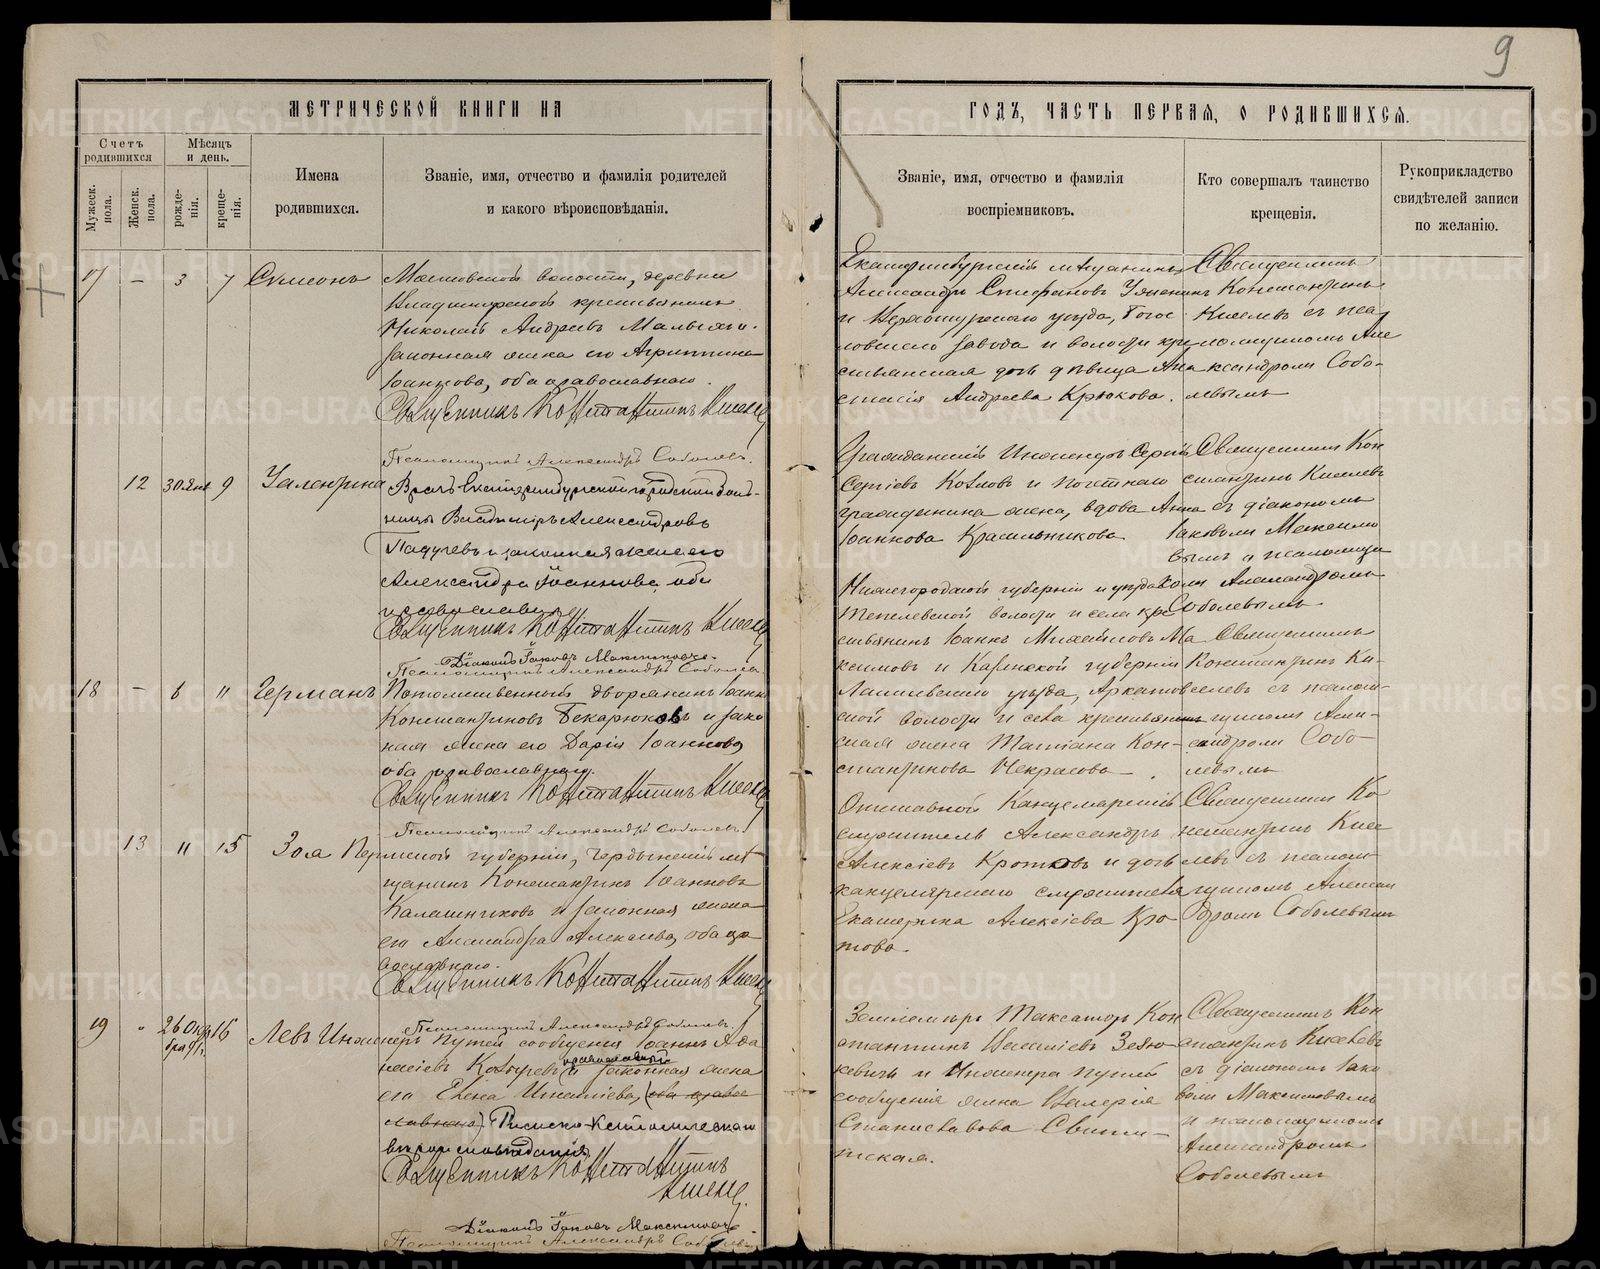 9
МЕТРИЧЕСКОЙ КНИГИ НА
ГОДЪ, ЧАСТЬ ПЕРВАЯ, О РОДИВШИХСЯ.
Счетъ родившихся
Мѣсяцъ и день.
Мужеск. пола.
Женск. пола.
рожде-нія.
креще-нія.
Имена
родившихся.
Званіе, имя, отчество и фамилія родителей
и какого вѣроисповѣданія.
Званіе, имя, отчество и фамилія
воспріемниковъ.
Кто совершалъ таинство
крещенія.
Рукоприкладство
свидѣтелей записи
по желанію.
17 — 3 7 Симеонъ
волости, деревни
Владимірской крестьянинъ
Николай Андреевъ
законная жена его Агриппина
Іоаннова, оба православнаго.
Священникъ Константинъ
Псаломщикъ Александръ Соболевъ.
Екатеринбургскій мѣщанинъ
Александръ Стефановъ
и Верхотурскаго уѣзда, Богос
ловскаго завода и волости кре
стьянская дочь дѣвица Ана
стасія Андреева Крюкова.
Священникъ
Константинъ
Киселевъ съ пса
ломщикомъ Але
ксандромъ Собо-
левымъ
12 30 Янв 9 Валентина
Врачъ Екатеринбургской городской боль-
ницы Владиміръ Александровъ
Падучевъ и законная жена его
Александра Іоаннова, оба
православные
Священникъ Константинъ
Діаконъ Іаковъ Максимовъ
Псаломщикъ Александръ Соболевъ
Гражданскій Инженеръ Сергій
Сергіевъ Козловъ и почетнаго
гражданина жена, вдова Анна
Іоаннова Красильникова
Священникъ Кон
стантинъ Киселевъ
съ діакономъ
Іаковомъ Максимо
вымъ и псаломщи
комъ Александромъ
Соболевымъ
18 — 6 11 Германъ
Потомственный дворянинъ Іоаннъ
Константиновъ Бекарюковъ и зако
нная жена его Дарія Іоаннова,
оба православнаго.
Священникъ Константинъ
Псаломщикъ Александръ Соболевъ
Нижегородской губерніи и уѣзда
Тепелевской волости и села кре
стьянинъ Іоаннъ Михайловъ Ма
ксимовъ и Казанской губерніи
Лаишевскаго уѣзда,
ской волости и села крестьян
ская жена Татіана Кон-
стантинова Некрасова
Священникъ
Константинъ Ки-
селевъ съ псалом-
щикомъ Алек-
сандромъ Собо-
левымъ
13 11 15 Зоя
Пермской губерніи, Чердынскій мѣ
щанинъ Константинъ Іоанновъ
Калашниковъ и законная жена
его Александра Алексѣева, оба пра
вославнаго.
Священникъ Константинъ
Псаломщикъ Александръ Соболевъ
Отставной Канцелярскій
служитель Александръ
Алексіевъ Кротовъ и дочь
канцелярскаго служителя
Екатерина Алексіева Кро-
това.
Священникъ Ко
нстантинъ Кисе
левъ съ псалом-
щикомъ Алексан
дромъ Соболевымъ
19 " 26 Октября 91 г. 16 Левъ
Инженеръ Путей сообщенія Іоаннъ
православный и законная жена
его Елена Игнатіева, (оба право
славные) Римско-Католическаго
вѣроисповѣданія
Священникъ Константинъ
Діаконъ Іаковъ Максимовъ
Псаломщикъ Александръ Соболевъ
Землемѣръ Таксаторъ Кон
стантинъ
и Инженера путей
сообщенія жена Валерія
Станиславова
Священникъ Кон
стантинъ Киселевъ
съ діакономъ Іако
вомъ Максимовымъ
и псаломщикомъ
Александромъ
Соболевымъ
METRIKI.GASO-URAL.RU